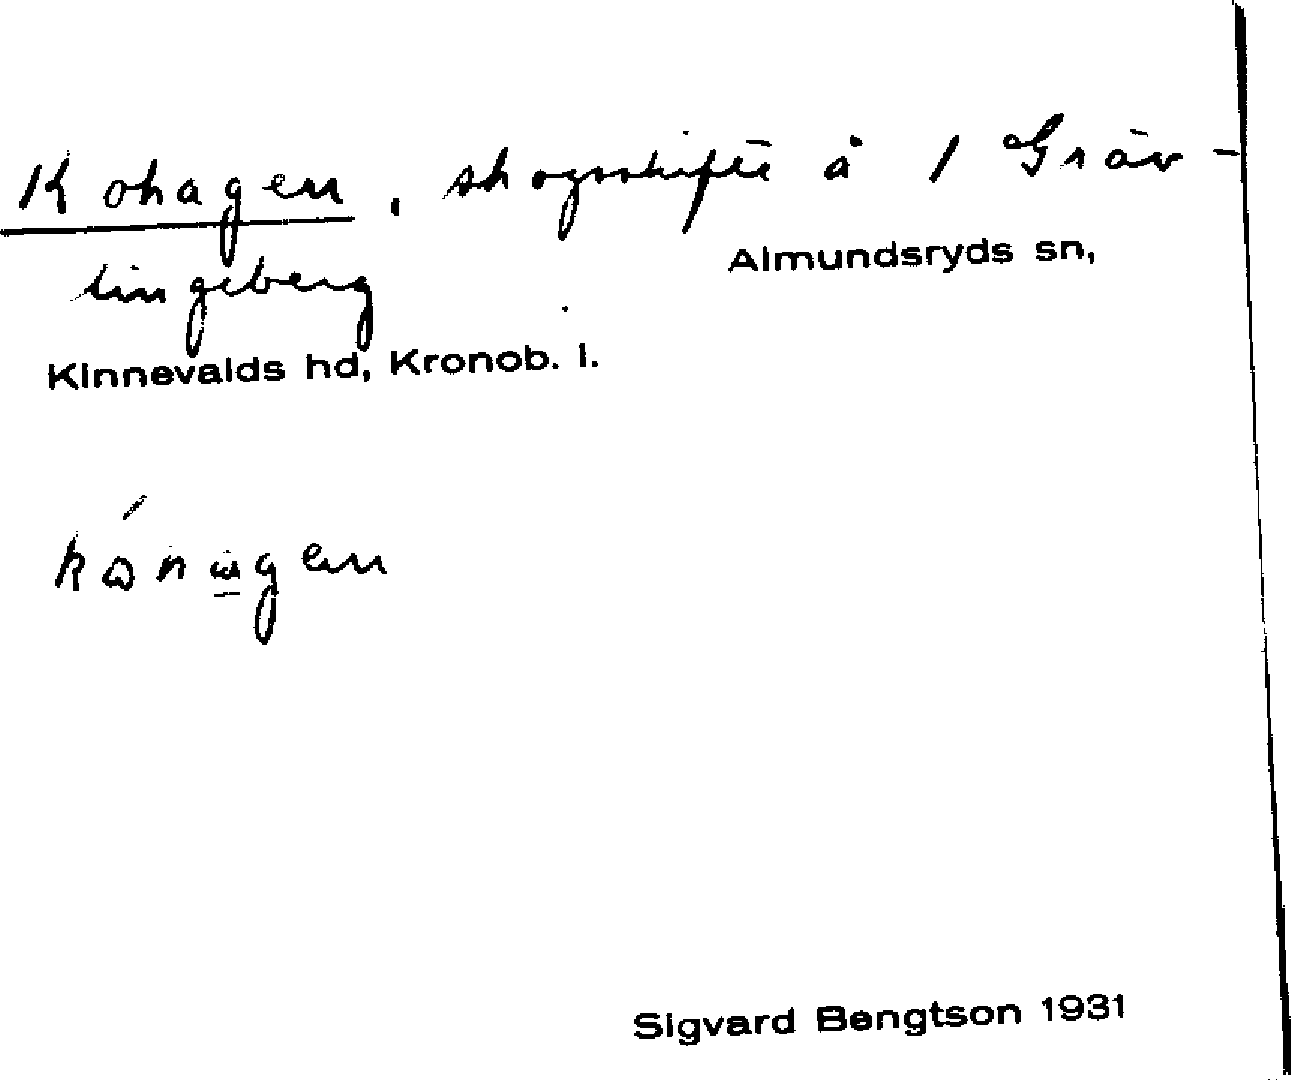 Kohagen, skogsskifte å 1 Gräv-
lingeberg
Almundsryds sn,
Kinnevalds hd, Kronob. l.
Sigvard Bengtson 1931